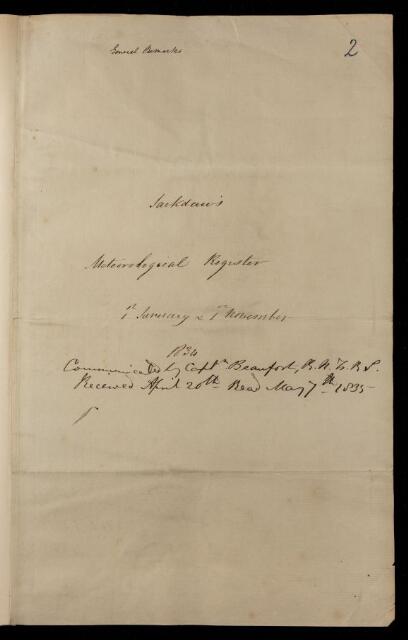 General Remarks
2
Jackdaw's
Meteorological Register
1st January & 1st November
1834
Communicated by Captn Beaufort, R.N. F.R.S.
Received April 20th Read May 7th 1835